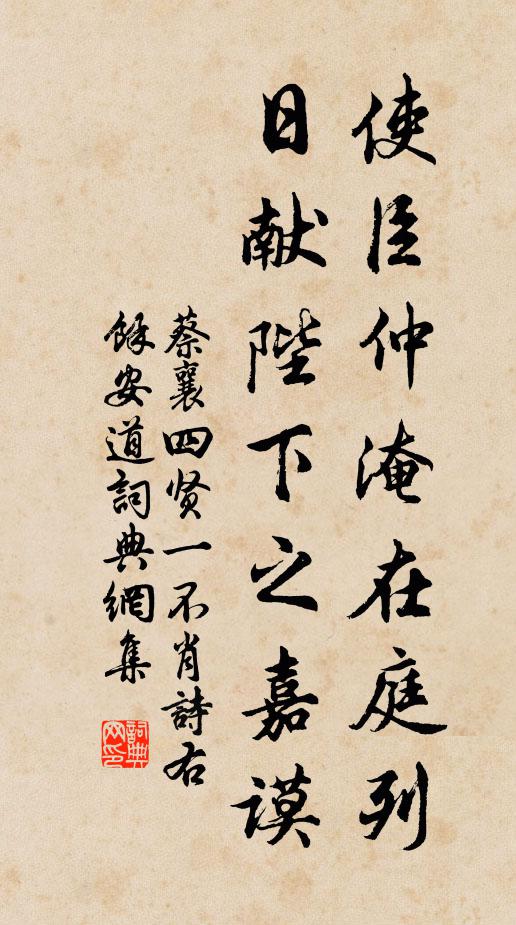 使臣仲淹在庭列
日献陛下之嘉谟
蔡襄四贤一不肖詩右
餘安道詞典網集
詞典
网印